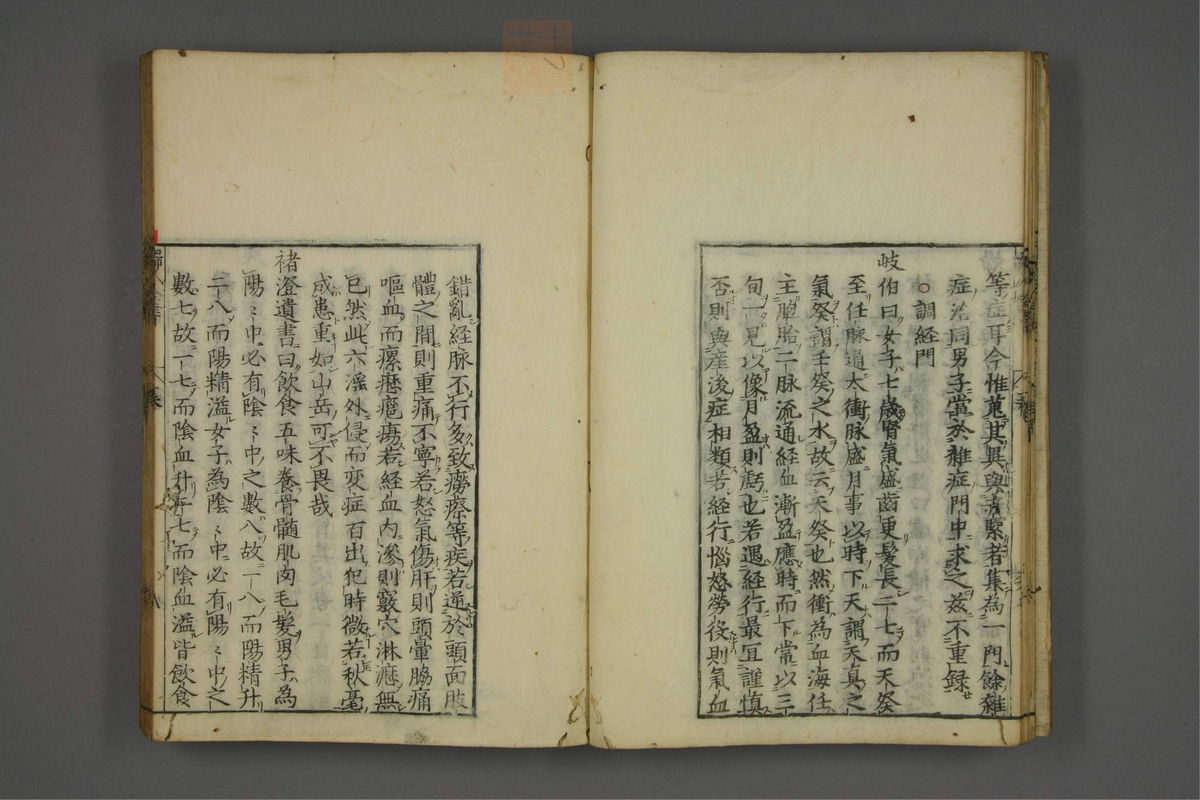 等症耳今惟蒐其異與專察者集為一門餘雜
症治同男子當於雜症門中求之茲不重録
○調経門
岐伯曰女子七歲腎氣盛齒更髮長二七而天癸
至任脉通太衝脉盛月事以時下天謂天真之
氣癸謂壬癸之水故云天癸也然衝為血海任
主胞胎二脉流通経血漸盈應時而下常以三
旬一見以像月盈則虧也若遇経行最宜謹慎
否則與産後症相類若経行惱怒勞役則氣血
錯亂経脉不行多致癆瘵等疾若逆於頭面肢
體之間則重痛不寧若怒氣傷肝則頭暈脇痛
嘔血而瘰癧癰瘍若経血内滲則竅穴淋瀝無
已然此六淫外侵而変症百出犯時微若秋毫
成患重如山岳可不畏哉
褚澄遺書曰飲食五味養骨髓肌肉毛髮男子為
陽〻中必有陰〻中之數八故一八而陽精升
二八而陽精溢女子為陰〻中必有陽〻中之
數七故一七而陰血升二七而陰血溢皆飲食